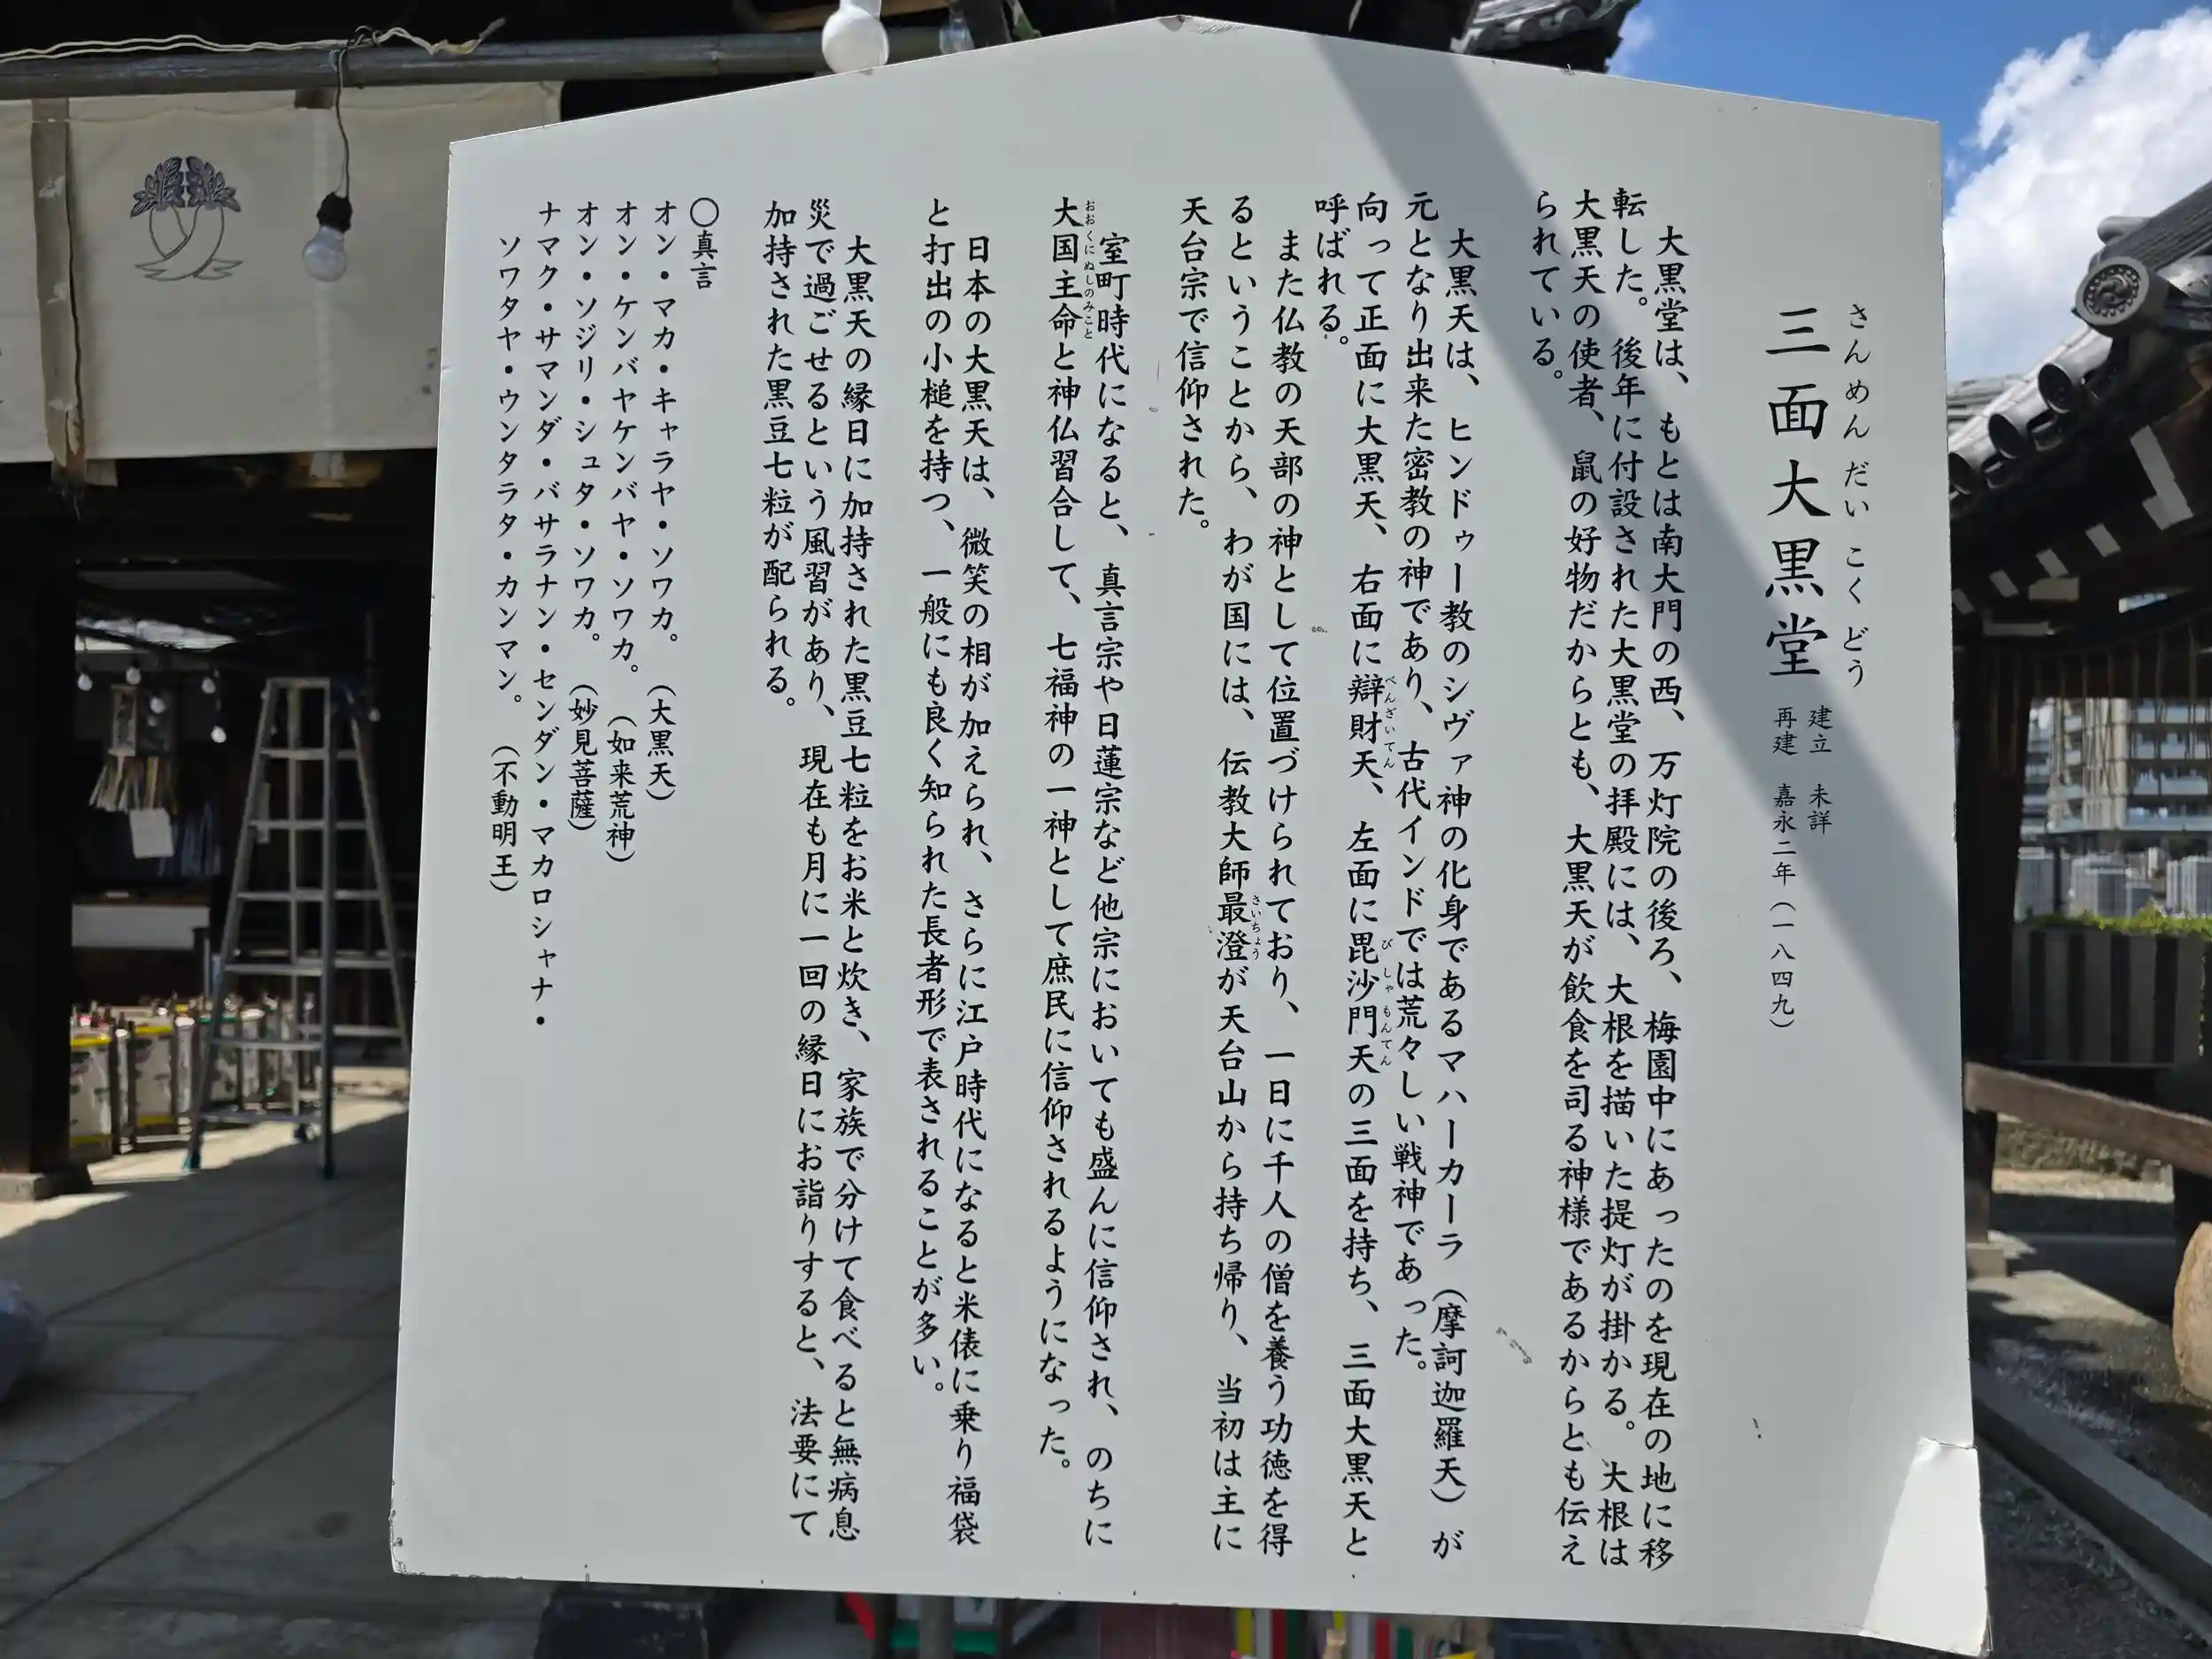 さんめんだいこくどう
三面大黒堂
建立 未詳
再建 嘉永二年(一八四九)
大黒堂は、もとは南大門の西、万灯院の後ろ、梅園中にあったのを現在の地に移
転した。後年に付設された大黒堂の拝殿には、大根を描いた提灯が掛かる。大根は
大黒天の使者、鼠の好物だからとも、大黒天が飲食を司る神様であるからとも伝え
られている。
大黒天は、ヒンドゥー教のシヴァ神の化身であるマハーカーラ(摩訶迦羅天)が
元となり出来た密教の神であり、古代インドでは荒々しい戦神であった。
向って正面に大黒天、右面に辯財天、左面に毘沙門天の三面を持ち、三面大黒天と
べんざいてん
びしゃもんてん
呼ばれる。
また仏教の天部の神として位置づけられており、一日に千人の僧を養う功徳を得
るということから、わが国には、伝教大師最澄が天台山から持ち帰り、当初は主に
さいちょう
天台宗で信仰された。
室町時代になると、真言宗や日蓮宗など他宗においても盛んに信仰され、のちに
大国主命と神仏習合して、七福神の一神として庶民に信仰されるようになった。
おおくにぬしのみこと
日本の大黒天は、微笑の相が加えられ、さらに江戸時代になると米俵に乗り福袋
と打出の小槌を持つ、一般にも良く知られた長者形で表されることが多い。
大黒天の縁日に加持された黒豆七粒をお米と炊き、家族で分けて食べると無病息
災で過ごせるという風習があり、現在も月に一回の縁日にお詣りすると、法要にて
加持された黒豆七粒が配られる。
〇真言
オン・マカ・キャラヤ・ソワカ。(大黒天)
オン・ケンバヤケンバヤ・ソワカ。(如来荒神)
オン・ソジリ・シュタ・ソワカ。(妙見菩薩)
ナマク・サマンダ・バサラナン・センダン・マカロシャナ・
ソワタヤ・ウンタラタ・カンマン。(不動明王)